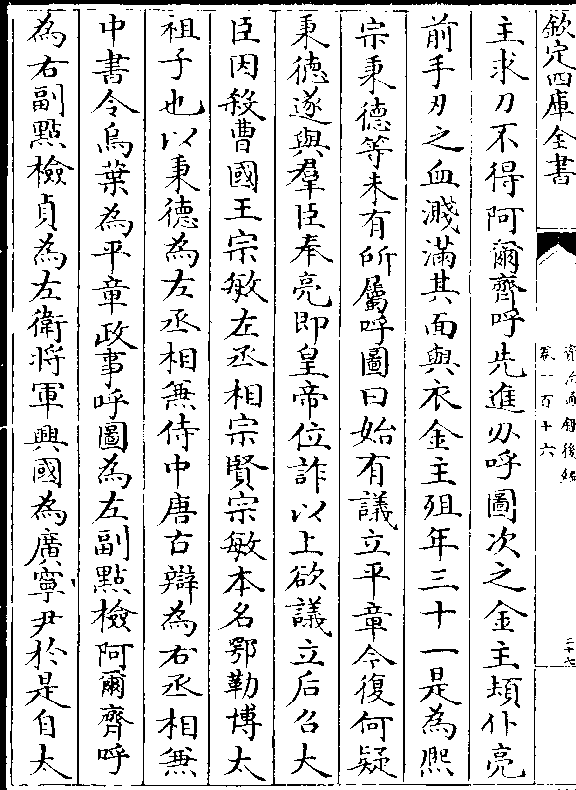 欽定四庫全書
資治通鑑後編
卷一百十六
二十七
主求刀不得阿爾齊呼先進刄呼圖次之金主頻仆亮
前手刃之血濺滿其面與衣金主殂年三十一是為熙
宗秉德等未有所屬呼圖曰始有議立平章今復何疑
秉德遂與羣臣奉亮即皇帝位詐以上欲議立后召大
臣因殺曹國王宗敏左丞相宗賢宗敏本名鄂勒博太
祖子也以秉德為左丞相兼侍中唐古辯為右丞相兼
中書令烏葉為平章政事呼圖為左副點檢阿爾齊呼
為右副點檢貞為左衛將軍興國為廣寧尹於是自太